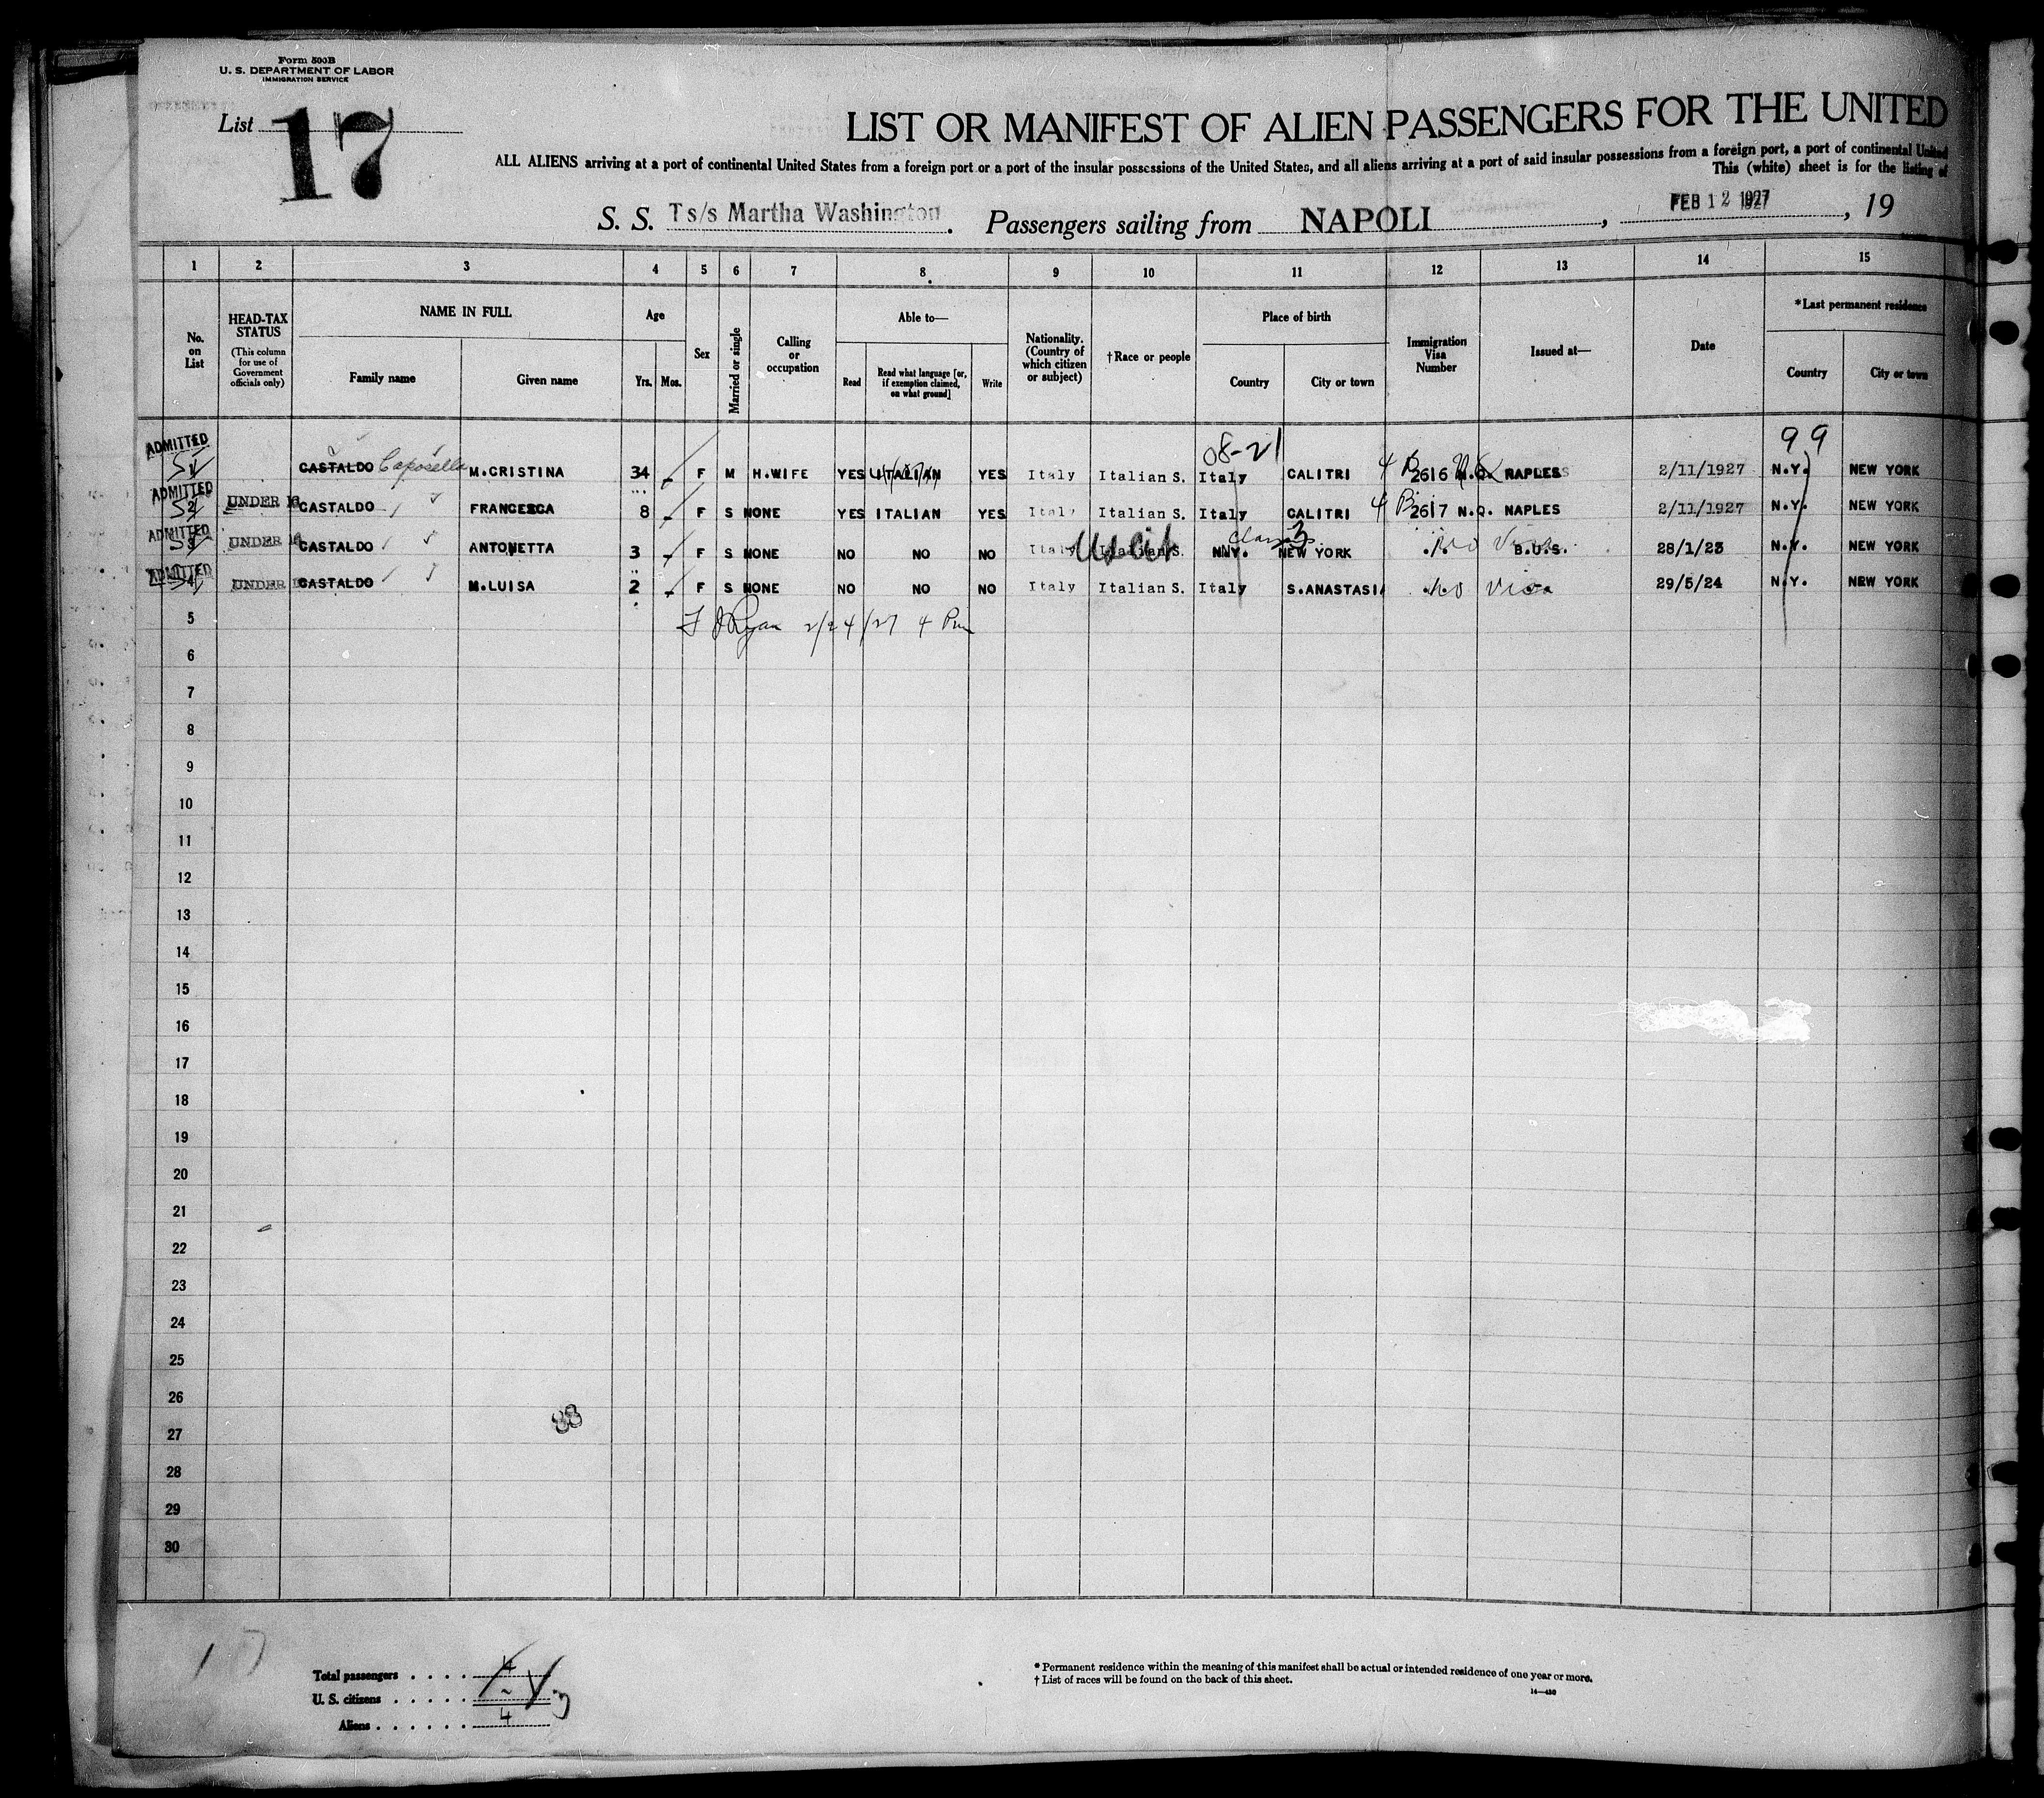 Form 500B
U. S. DEPARTMENT OF LABOR
IMMIGRATION SERVICE
List 17
LIST OR MANIFEST OF ALIEN PASSENGERS FOR THE UNITED
ALL ALIENS arriving at a port of continental United States from a foreign port or a port of the insular possessions of the United States, and all aliens arriving at a port of said insular possessions from a foreign port, a port of continental United
This (white) sheet is for the listing of
S. S. Ts/s Martha Washington. Passengers sailing from NAPOLI, FEB 12 1927, 19
1 2 3 4 5 6 7 8 9 10 11 12 13 14 15
No. on List
HEAD-TAX STATUS
(This column for use of Government officials only)
NAME IN FULL
Family name
Given name
Age
Yrs. Mos.
Sex
Married or single
Calling or occupation
Able to—
Read
Read what language [or, if exemption claimed, on what ground]
Write
Nationality. (Country of which citizen or subject)
†Race or people
Place of birth
Country
City or town
Immigration Visa Number
Issued at—
Date
*Last permanent residence
Country
City or town
08-21 99
ADMITTED CASTALDO Caposella M.CRISTINA 34 F M H.WIFE YES ITALIAN YES Italy Italian S. Italy CALITRI 4 B 2616 N.Q. NAPLES 2/11/1927 N.Y. NEW YORK
ADMITTED 2 UNDER 16 CASTALDO FRANCESCA 8 F S NONE YES ITALIAN YES Italy Italian S. Italy CALITRI 4 B 2617 N.Q. NAPLES 2/11/1927 N.Y. NEW YORK
ADMITTED 3 UNDER 16 CASTALDO ANTONETTA 3 F S NONE NO NO NO Italy US Cit Italian S. N.Y. NEW YORK No Visa B.U.S. 28/1/23 N.Y. NEW YORK
ADMITTED UNDER CASTALDO M.LUISA 2 F S NONE NO NO NO Italy Italian S. Italy S.ANASTASIA No Visa 29/5/24 N.Y. NEW YORK
5 F J Ryan 2/24/27 4 Pm
6
7
8
9
10
11
12
13
14
15
16
17
18
19
20
21
22
23
24
25
26
27
28
29
30
88
17
Total passengers . . . . 4
U. S. citizens . . . . .
Aliens . . . . . . 4
* Permanent residence within the meaning of this manifest shall be actual or intended residence of one year or more.
† List of races will be found on the back of this sheet.